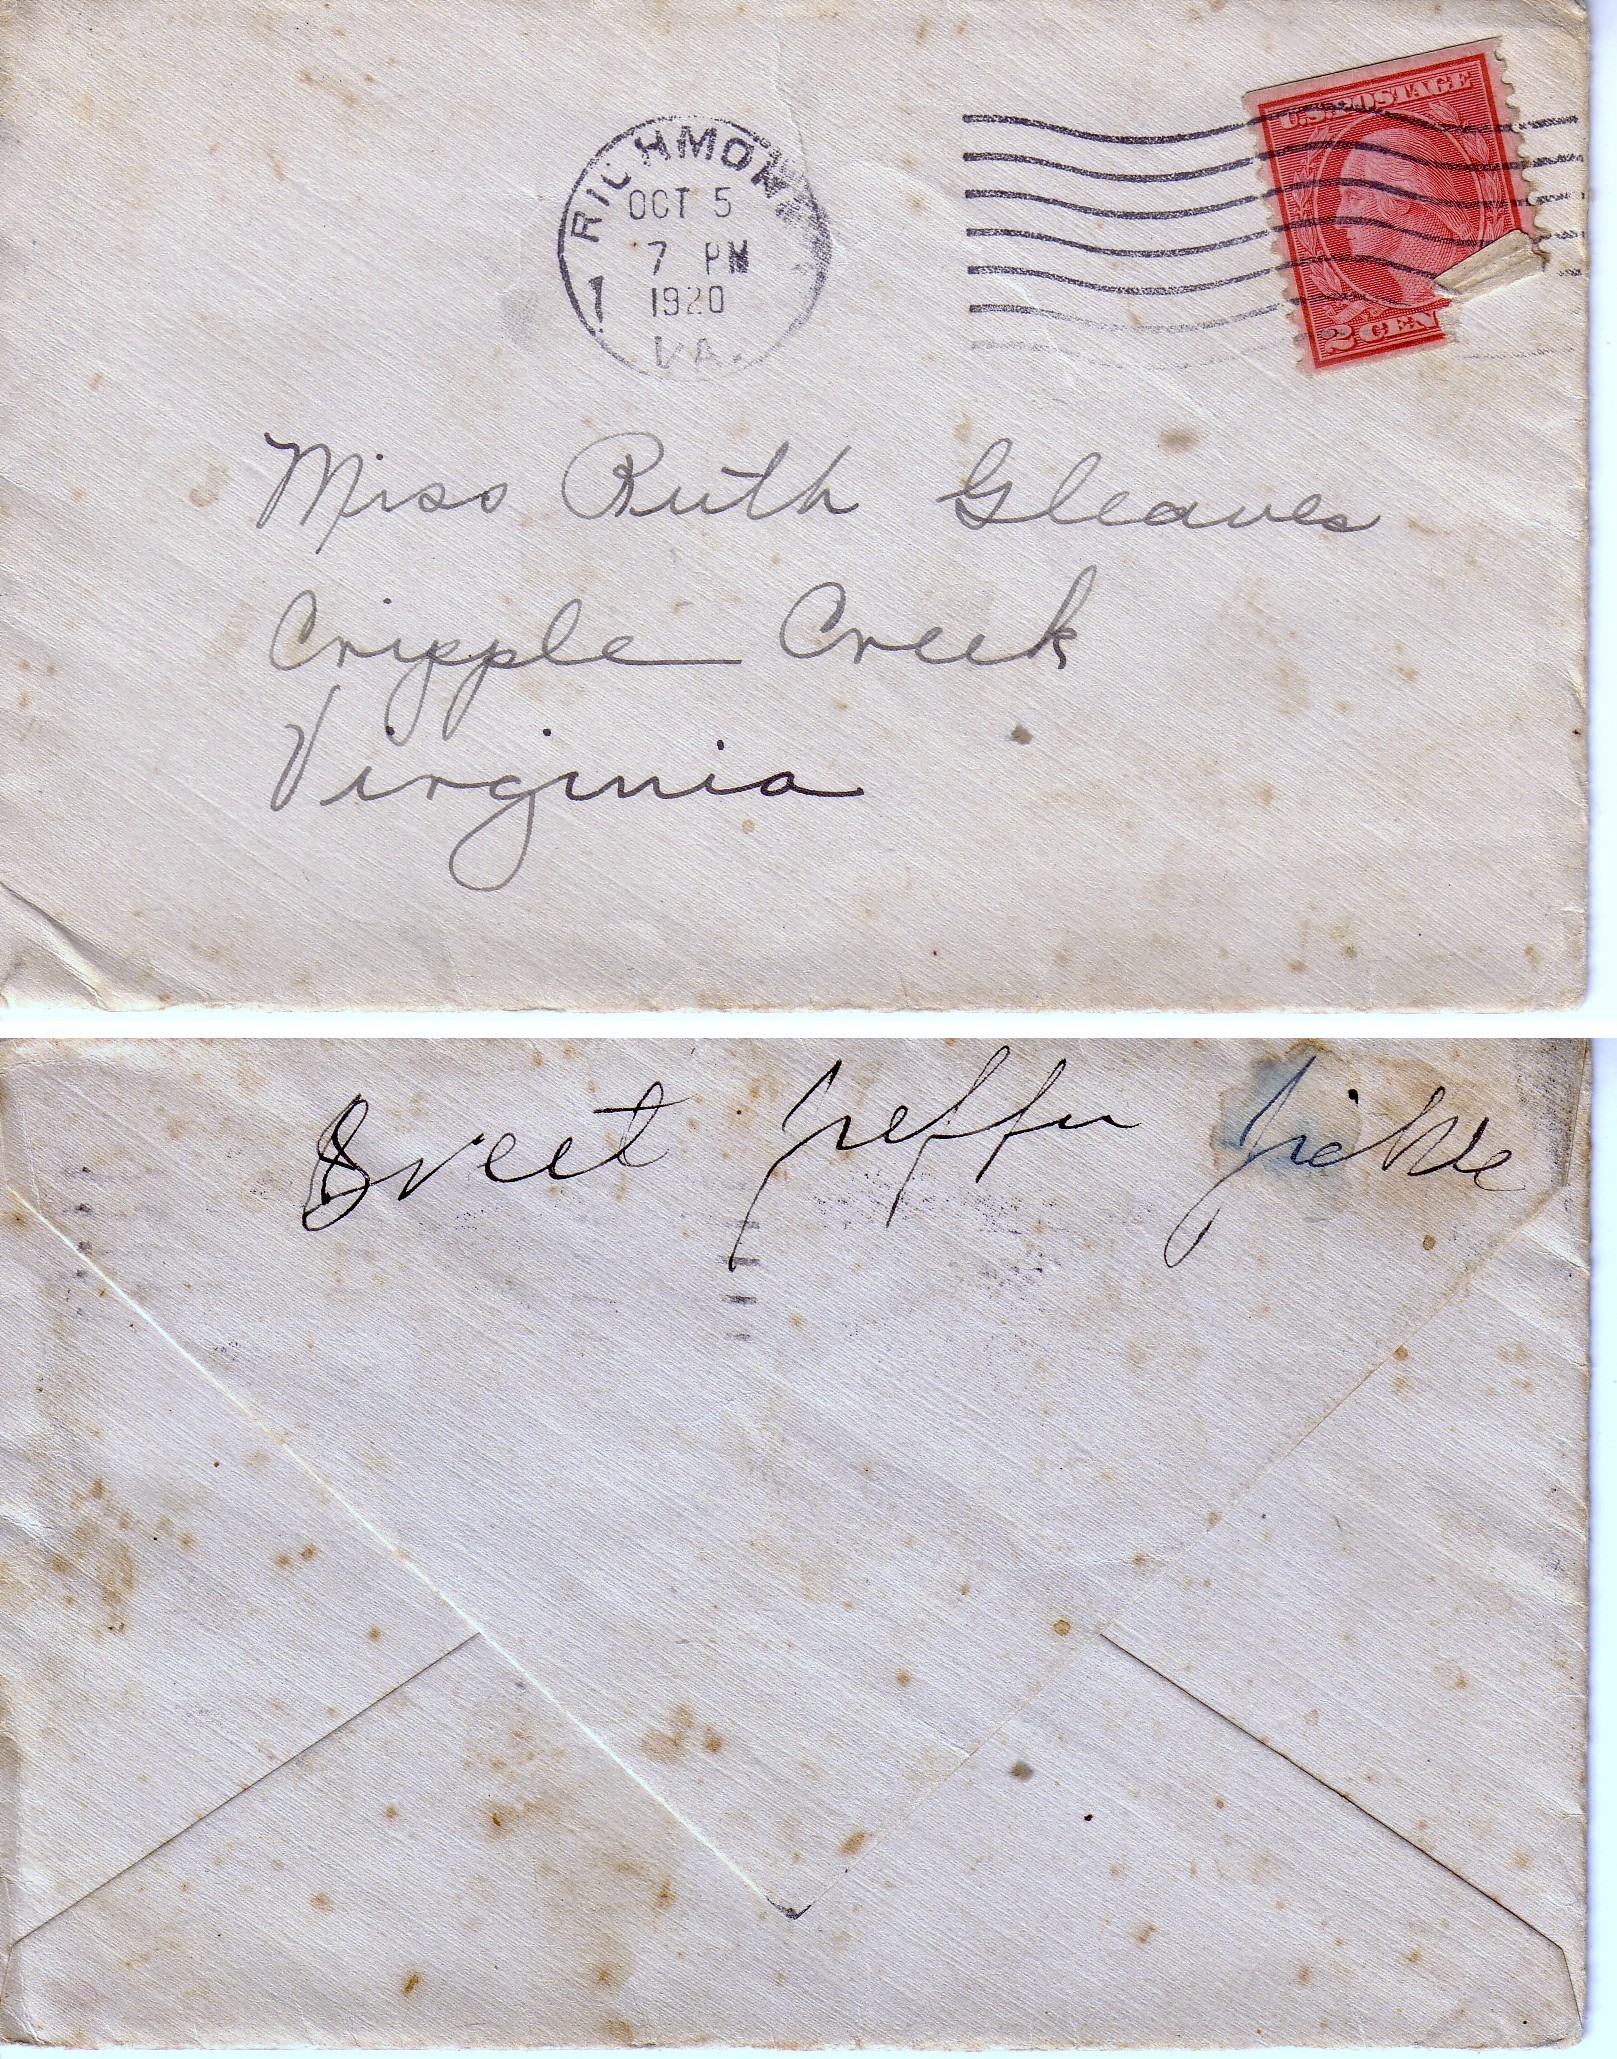 RICHMOND
OCT 5
7 PM
1920
1
VA.
U.S. POSTAGE
2 CEN
Miss Ruth Gleaves
Cripple Creek
Virginia
Sweet peffer pickle